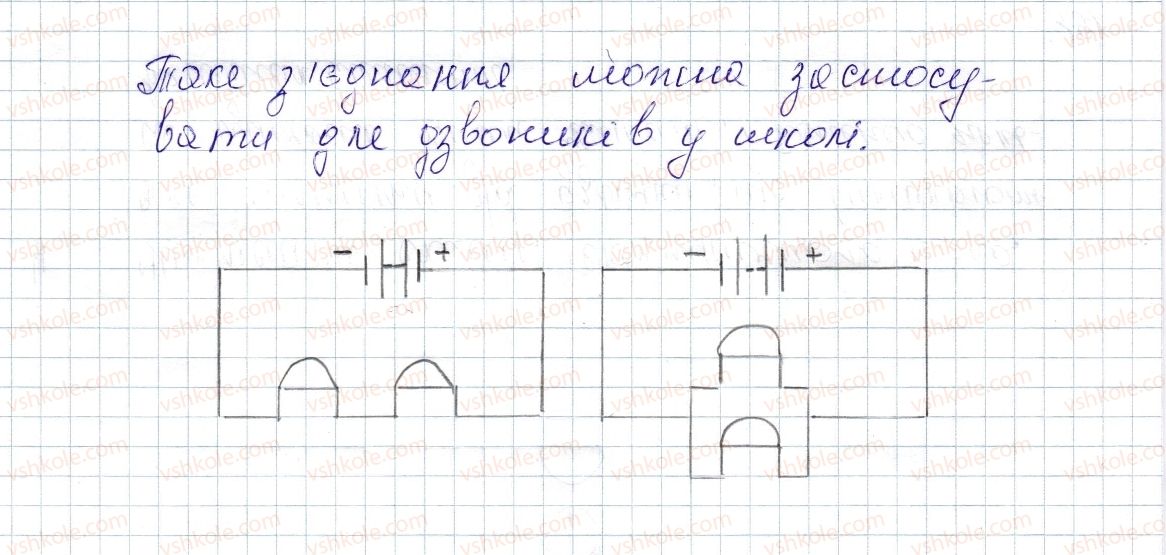 Таке з'єднання можна застосу-
вати для дзвоників у школі.
- +
- +